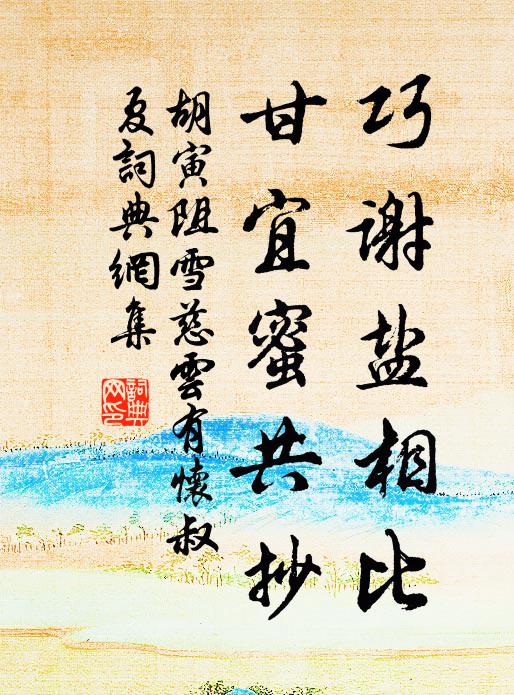 巧謝盐相比
甘宜蜜共抄
胡寅阻雪慈雲有懷叔
夏詞典網集
詞典
网印